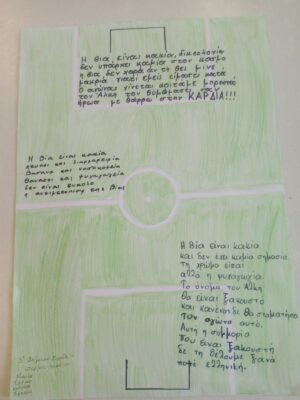 Η Βία, είναι κακία, δικαιολογία
δεν υπάρχει καμία στον κόσμο
η βία δεν χαρά αν τη θει μινε
μακριά γιατί εμείς είμαστε κατά
Ο αγώνας γίνεται κοιταμε μπροστά
τον Άλκη τον θυμόμαστε σαν
ήρωα με θάρρος στην ΚΑΡΔΙΑ!!!
Η Βία είναι κακία
και
και
θάνατος και ψυχαγωγία
δεν είναι εύκολο
η αντιμετώπιση της βίας
Η Βία είναι κακία
και δεν έχει καμία σημασία
τι χρώμα είσαι
αλλά η ψυχαγωγία.
Το όνομα του Άλκη
θα είναι ξακουστό
και κανένας δε θα σταματήσει
τον αγώνα αυτό.
Αυτη η συμμορία
που είναι ξακουστή
δε τη θέλουμε ξανά
ποτέ ελληνική.